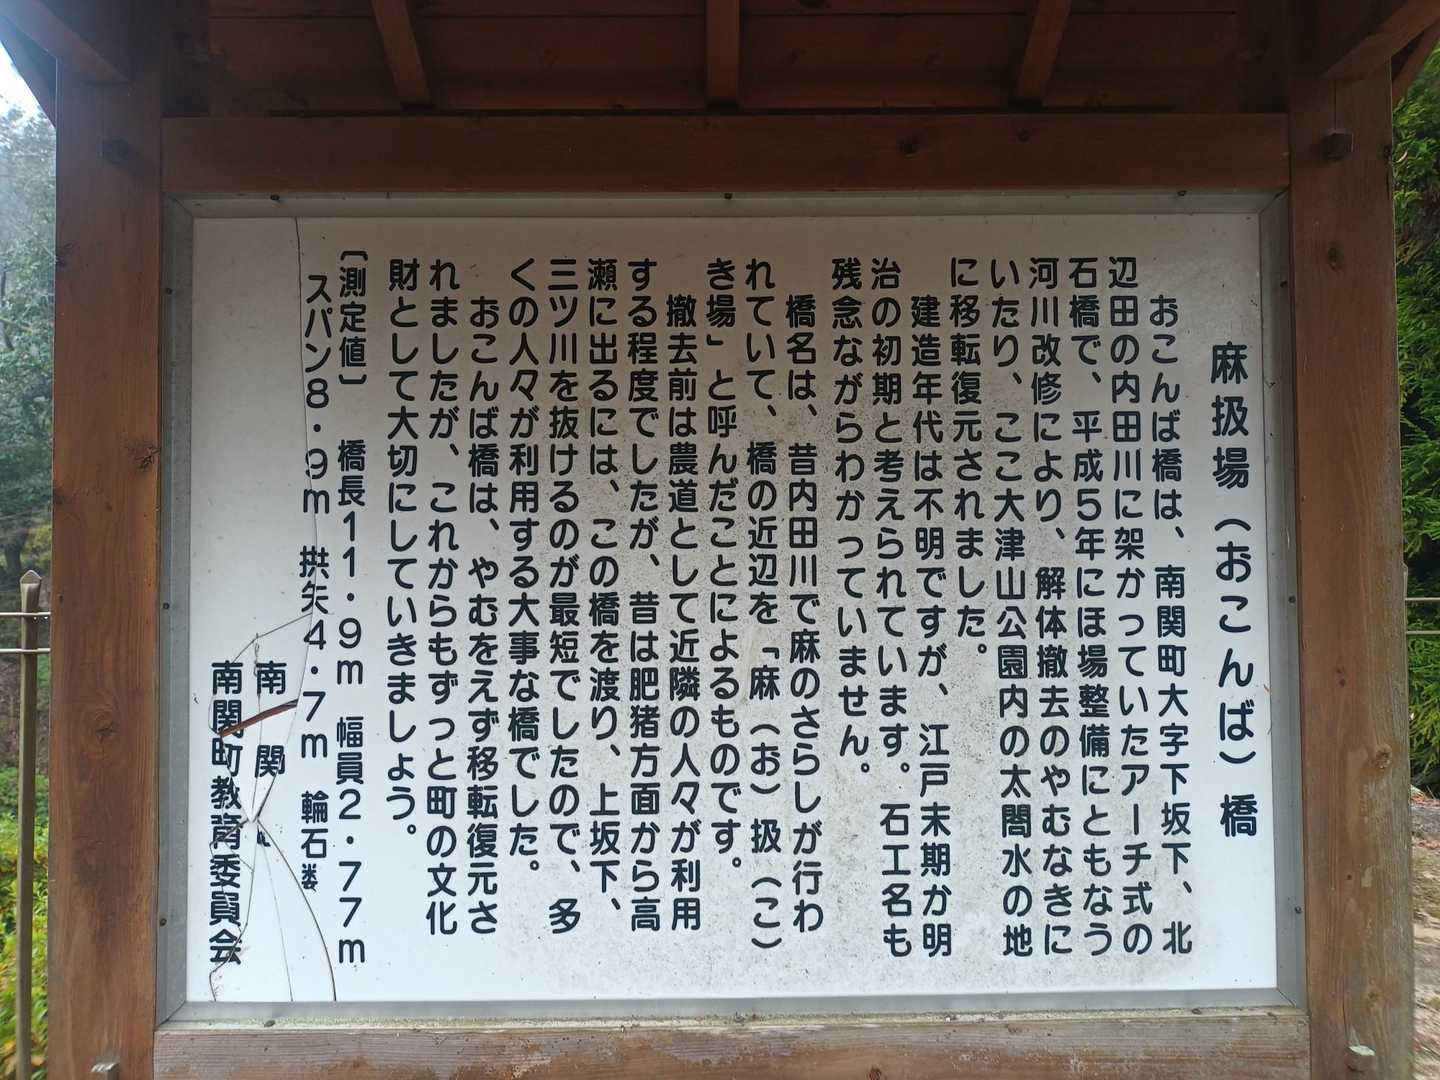 麻扱場（おこんば）橋
おこんば橋は、南関町大字下坂下、北
辺田の内田川に架かっていたアーチ式の
石橋で、平成5年にほ場整備にともなう
河川改修により、解体撤去のやむなきに
いたり、ここ大津山公園内の太閤水の地
に移転復元されました。
建造年代は不明ですが、江戸末期か明
治の初期と考えられています。石工名も
残念ながらわかっていません。
橋名は、昔内田川で麻のさらしが行わ
れていて、橋の近辺を「麻（お）扱（こ）
き場」と呼んだことによるものです。
撤去前は農道として近隣の人々が利用
する程度でしたが、昔は肥猪方面から高
瀬に出るには、この橋を渡り、上坂下、
三ツ川を抜けるのが最短でしたので、多
くの人々が利用する大事な橋でした。
おこんば橋は、やむをえず移転復元さ
れましたが、これからもずっと町の文化
財として大切にしていきましょう。
〔測定値〕 橋長11・9m 幅員2・77m
スパン8・9m 拱矢4・7m 輪石
南関
南関町教育委員会